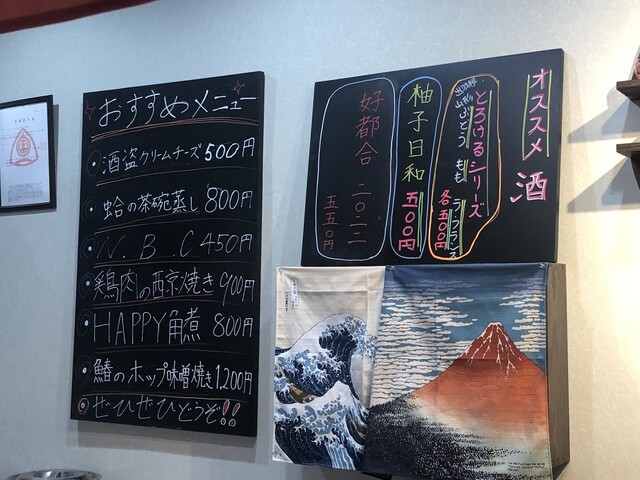 おすすめメニュー
酒盗クリームチーズ 500円
蛤の茶碗蒸し 800円
N.B.C 450円
鶏肉の西京焼き 900円
HAPPY角煮 800円
鰆のホップ味噌焼き 1,200円
ぜひぜひどうぞ!!
オススメ 酒
とろけるシリーズ
ぶどう もも ラ・フランス
各500円
柚子日和
500円
好都合 二〇二二
五五〇円